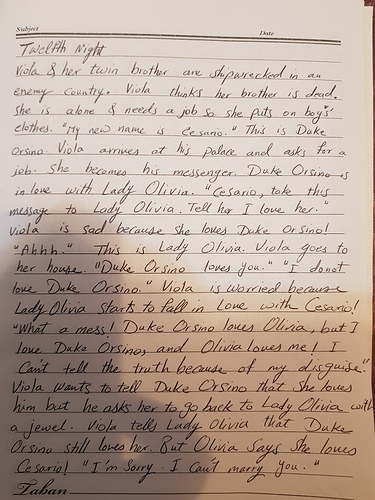 Subject
Date
Twelfth Night
Viola & her twin brother are shipwrecked in an
enemy country. Viola thinks her brother is dead.
She is alone & needs a job so she puts on boy's
clothes. "My new name is Cesario." This is Duke
Orsino. Viola arrives at his palace and asks for a
job. She becomes his messenger. Duke Orsino is
in love with Lady Olivia. "Cesario, take this
message to Lady Olivia. Tell her I love her."
Viola is sad because she loves Duke Orsino!
"Ahhh." This is Lady Olivia. Viola goes to
her house. "Duke Orsino loves you." "I do not
love Duke Orsino." Viola is worried because
Lady Olivia starts to fall in Love with Cesario!
"What a mess! Duke Orsino loves Olivia, but I
love Duke Orsino, and Olivia loves me! I
Can't tell the truth because of my disguise."
Viola wants to tell Duke Orsino that She loves
him but he asks her to go back to Lady Olivia with
a jewel. Viola tells Lady Olivia that Duke
Orsino still loves her. But Olivia Says She loves
Cesario! "I'm Sorry. I Can't marry you."
Taban